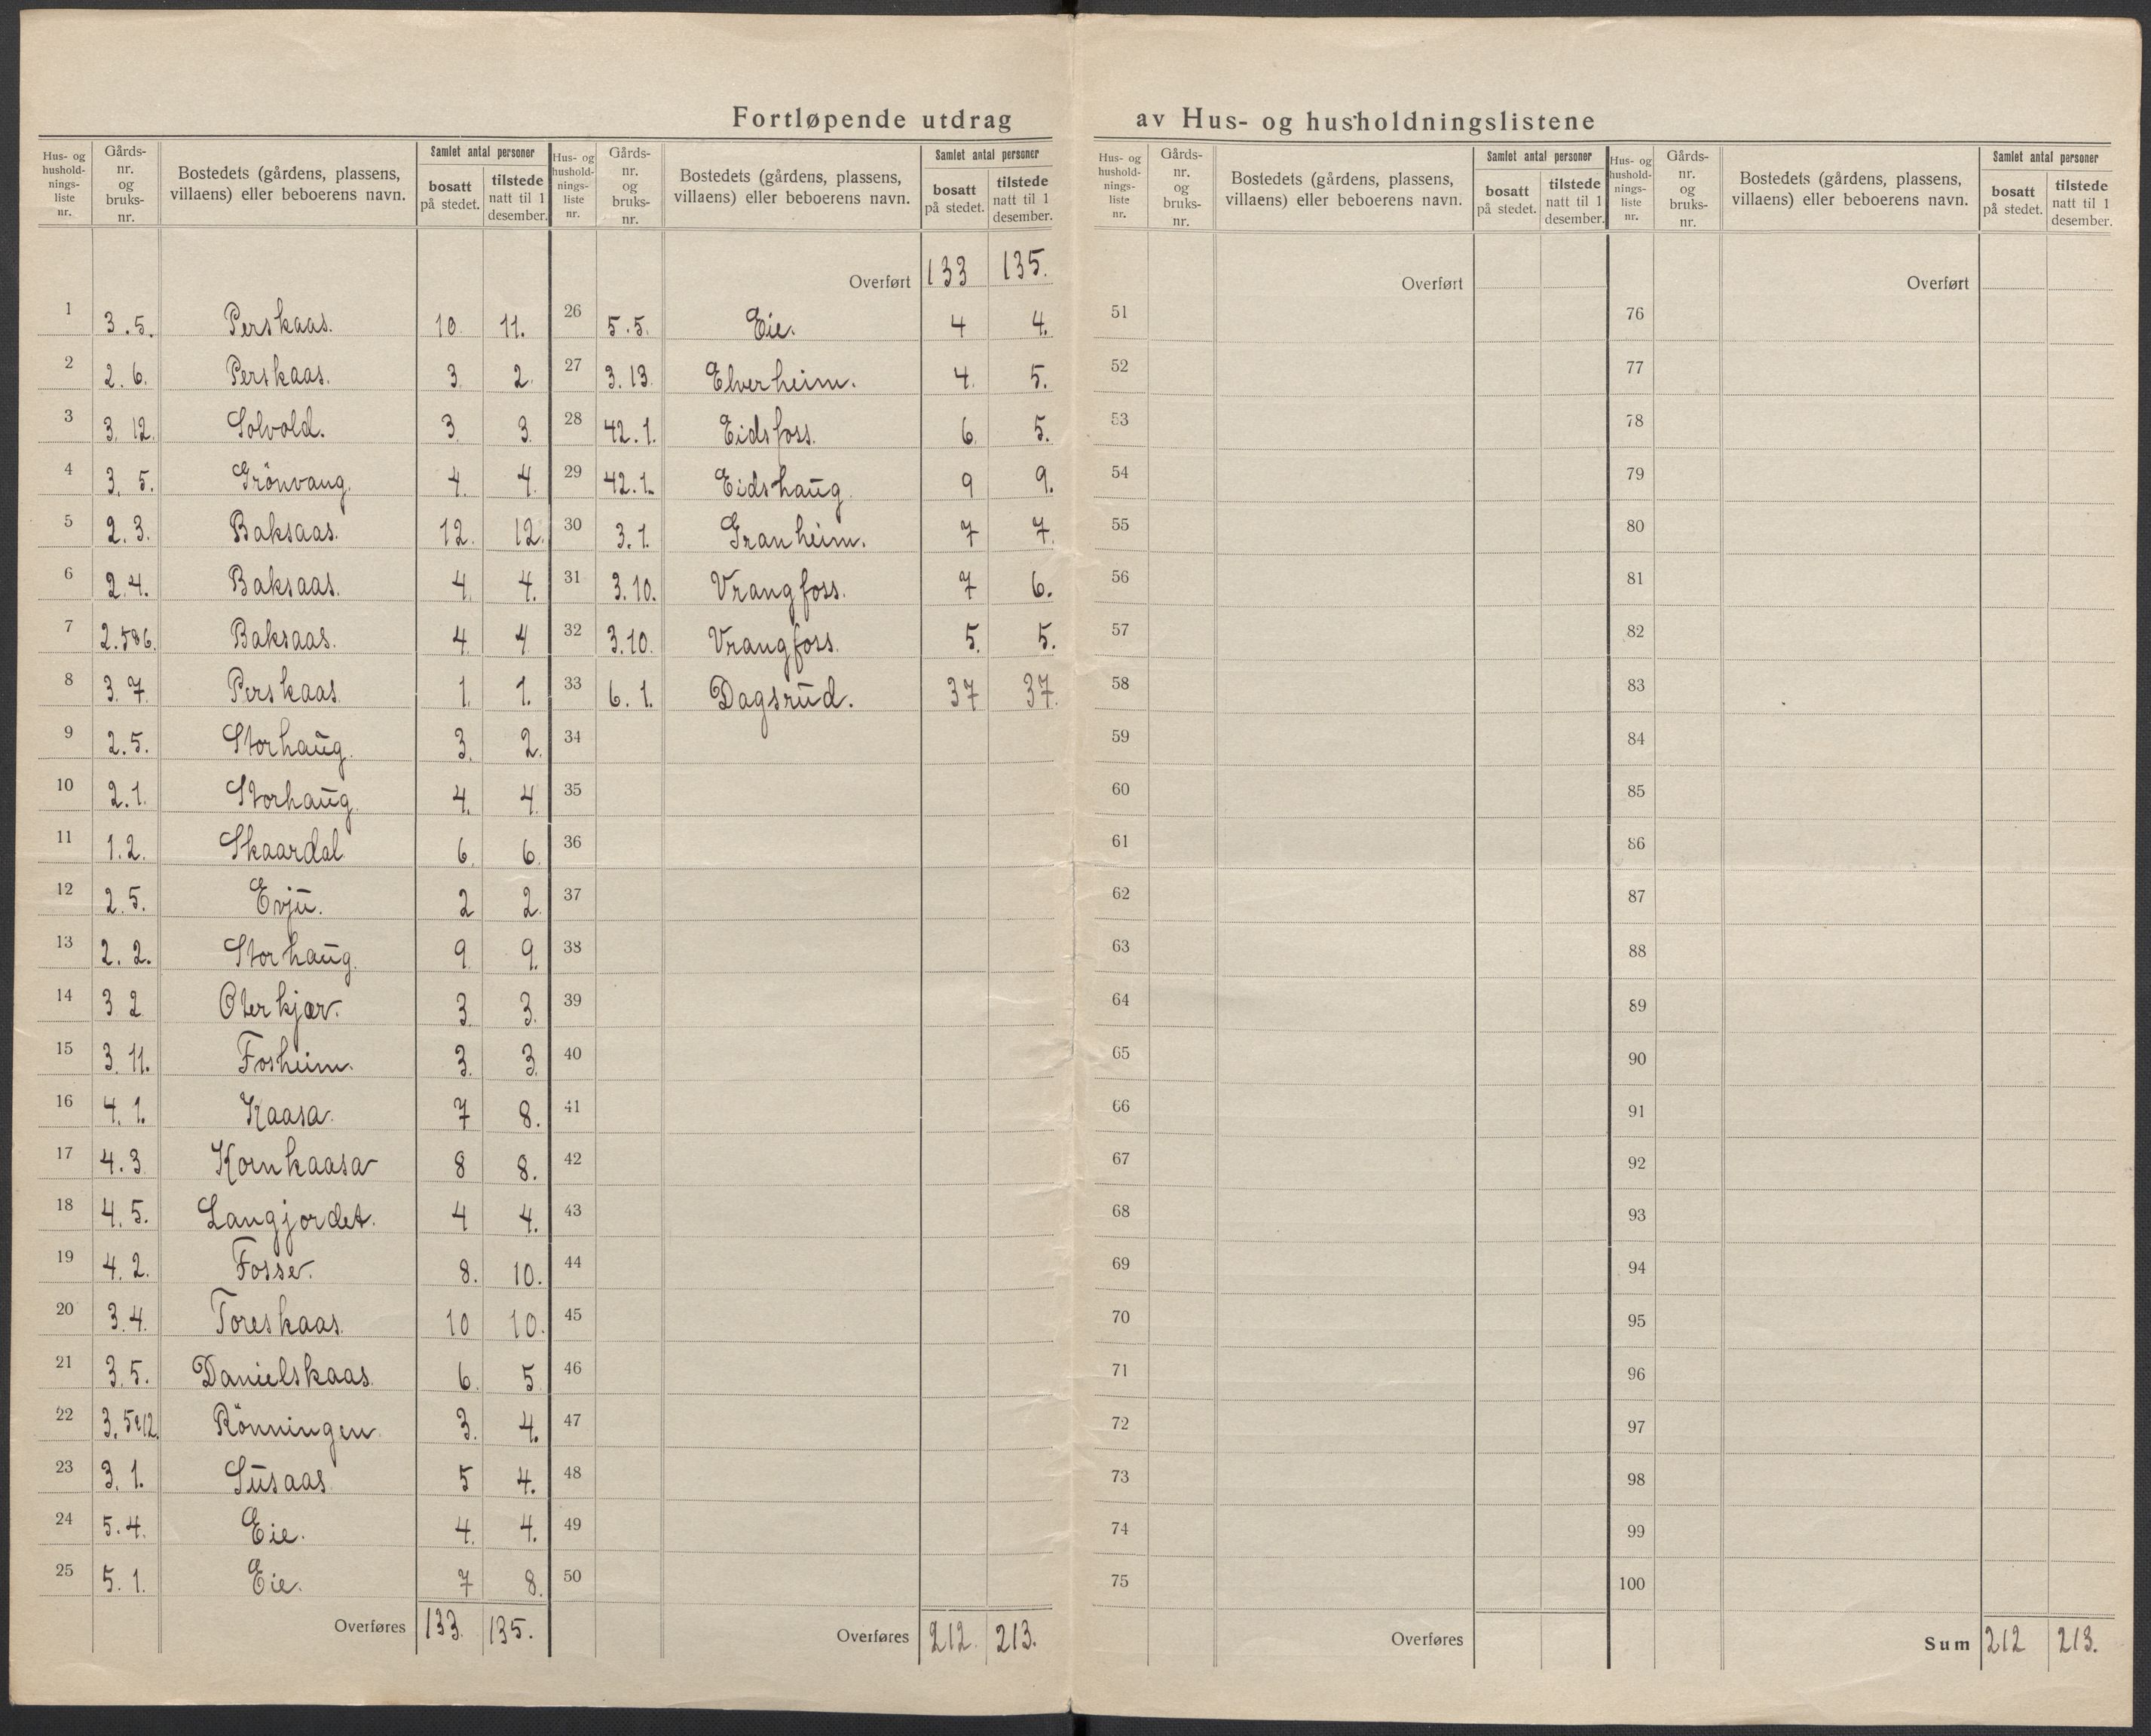 Fortløpende utdrag av Hus- og husholdningslistene
Hus- og hushold-nings-liste nr. | Gårds-nr. og bruks-nr. | Bostedets (gårdens, plassens, villaens) eller beboerens navn. | Samlet antal personer | bosatt på stedet. | tilstede natt til 1 desember.
1 3.5. Perskaas. 10. 11.
2 2.6. Perskaas. 3. 2.
3 3.12. Solvold. 3. 3.
4 3.5. Grönvang. 4. 4.
5 2.3. Baksaas. 12. 12.
6 2.4. Baksaas. 4. 4.
7 2.5&6. Baksaas. 4 4
8 3.7. Perskaas. 1. 1.
9 2.5. Storhaug. 3. 2.
10 2.1. Storhaug. 4. 4.
11 1.2. Skaardal. 6. 6.
12 2.5. Evju. 2 2.
13 2.2. Storhaug. 9. 9.
14 3 2 Oterkjær. 3. 3.
15 3.11. Fosheim. 3. 3.
16 4.1. Kaasa. 7 8.
17 4.3 Kornkaasa 8 8.
18 4.5. Langjordet. 4 4.
19 4.2. Fosse. 8. 10.
20 3.4. Toreskaas. 10 10.
21 3.5. Danielskaas. 6. 5
22 3.5&12. Rönningen. 3. 4.
23 3.1. Susaas 5 4.
24 5.4. Eie. 4. 4.
25 5.1. Eie. 7 8.
Overføres 133. 135.
Hus- og hushold-nings-liste nr. | Gårds-nr. og bruks-nr. | Bostedets (gårdens, plassens, villaens) eller beboerens navn. | Samlet antal personer | bosatt på stedet. | tilstede natt til 1 desember.
Overført 133 135.
26 5.5. Eie. 4 4.
27 3.13. Elverheim. 4. 5.
28 42.1. Eidsfoss. 6. 5.
29 42.1. Eidshaug. 9 9.
30 3.1. Granheim. 7 7.
31 3.10. Vrangfoss. 7 6.
32 3.10. Vrangfoss. 5. 5.
33 6.1. Dagsrud. 37 37.
34
35
36
37
38
39
40
41
42
43
44
45
46
47
48
49
50
Overføres 212. 213.
Hus- og hushold-nings-liste nr. | Gårds-nr. og bruks-nr. | Bostedets (gårdens, plassens, villaens) eller beboerens navn. | Samlet antal personer | bosatt på stedet. | tilstede natt til 1 desember.
Overført
51
52
53
54
55
56
57
58
59
60
61
62
63
64
65
66
67
68
69
70
71
72
73
74
75
Overføres
Hus- og hushold-nings-liste nr. | Gårds-nr. og bruks-nr. | Bostedets (gårdens, plassens, villaens) eller beboerens navn. | Samlet antal personer | bosatt på stedet. | tilstede natt til 1 desember.
Overført
76
77
78
79
80
81
82
83
84
85
86
87
88
89
90
91
92
93
94
95
96
97
98
99
100
Sum 212 213.